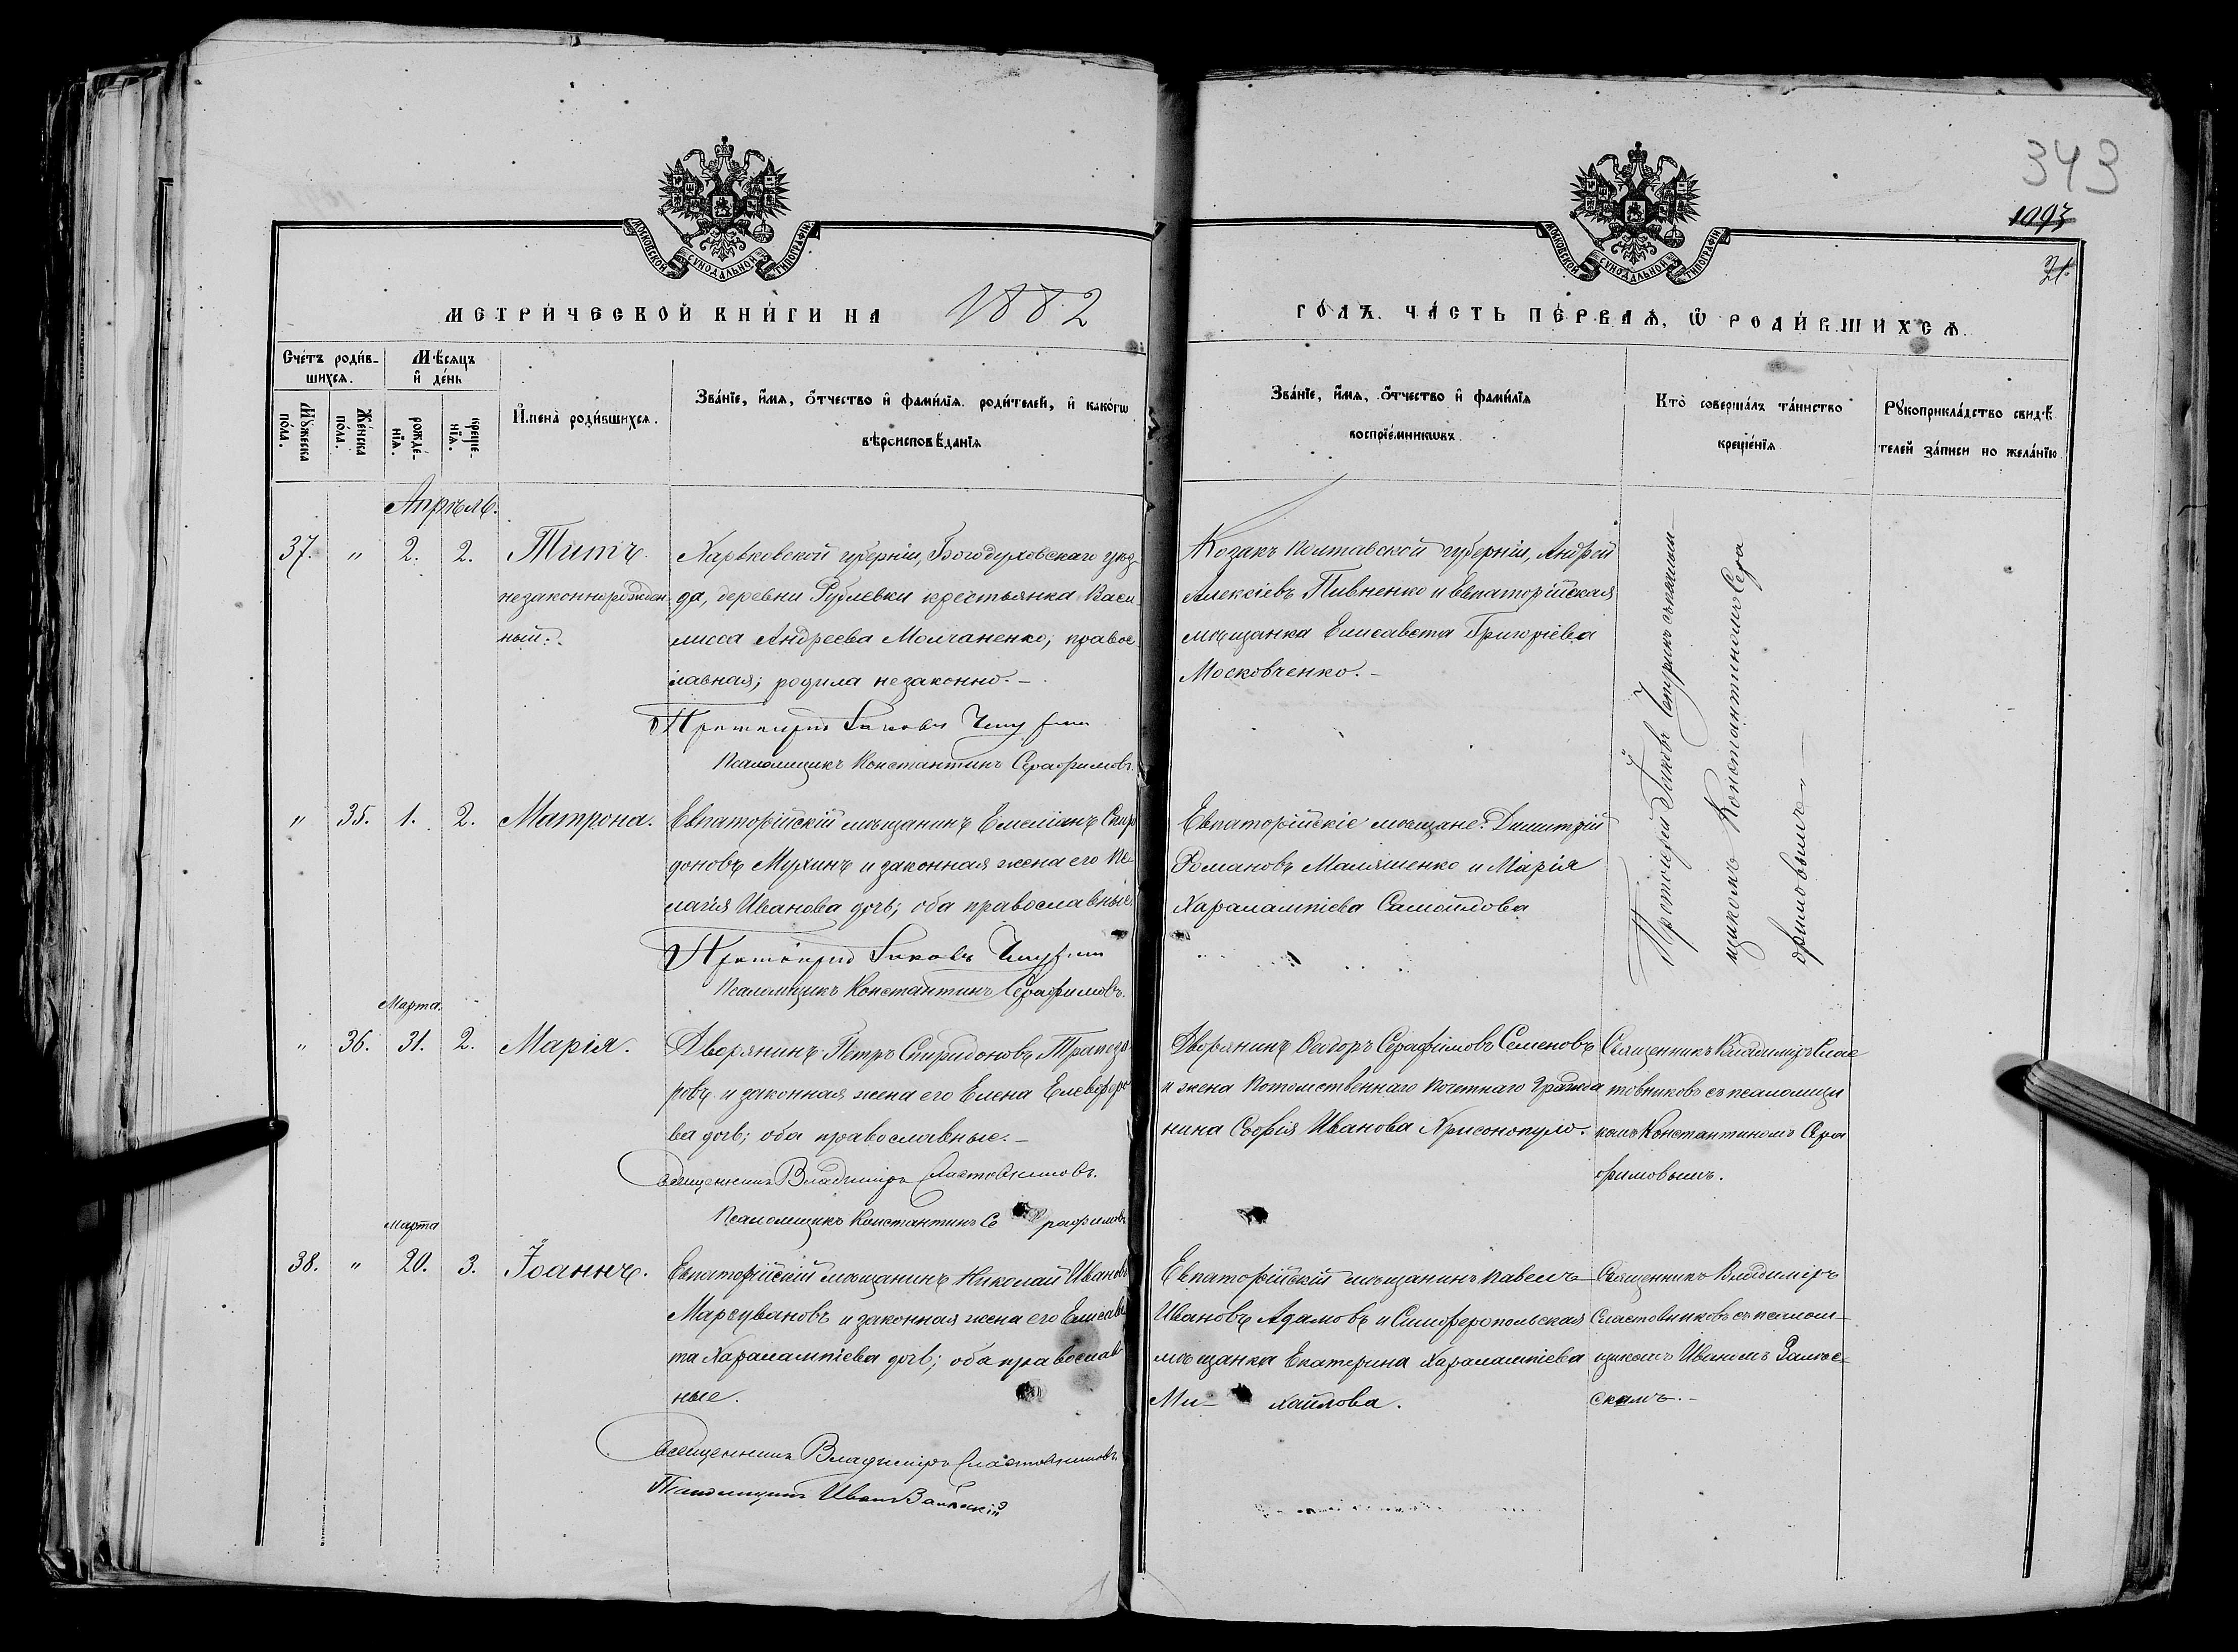 343
1093
21.
МОСКОВСКОЙ СѴНОДАЛЬНОЙ ТИПОГРАФІИ
МОСКОВСКОЙ СѴНОДАЛЬНОЙ ТИПОГРАФІИ
МЕТРИ́ЧЕСКОЙ КНИ́ГИ НА 1882
ГО́ДЪ. ЧА́СТЬ ПЕ́РВАѦ, Ѿ РОДИ́ВШИХСѦ.
Сче́тъ роди́в-
шихсѧ.
Мꙋ́жеска по́ла.
Же́нска по́ла.
Мѣ́сѧцъ
и҆ де́нь
рожде́-
нїѧ.
креще́-
нїѧ.
И҆мена̀ роди́вшихсѧ.
Зва́нїе, и҆́мѧ, ѻ҆́тчество и҆ фами́лїѧ роди́телей, и҆ како́гѡ
вѣроисповѣ́данїѧ
Зва́нїе, и҆́мѧ, ѻ҆́тчество и҆ фами́лїѧ
воспрїе́мникѡвъ.
Кто̀ соверша́лъ та́инство
креще́нїѧ
Рꙋкоприкла́дство свидѣ́
телей за́писи по жела́нїю
Апрѣль.
37. " 2. 2. Титъ.
незаконнорожден
ный.
Харьковской губерніи, Богодуховскаго уѣз-
да, деревни Рублевки крестьянка Васи
лисса Андреева Молчаненко, правос
лавная; родила незаконно. –
Протоіерей Іаковъ Чепуринъ
Псаломщикъ Константинъ Серафимовъ.
Козакъ Полтавской губерніи, Андрей
Алексіевъ Пивненко и Евпаторійская
мѣщанка Елисавета Григоріева
Московченко. –
Протоіерей Іаковъ Чепуринъ съ псалом
щикомъ Константиномъ Сера
фимовымъ. –
" 35. 1. 2. Матрона.
Евпаторійскій мѣщанинъ Емеліанъ Спири
доновъ Мухинъ и законная жена его Пе-
лагія Иванова дочь; оба православные.
Протоіерей Іаковъ Чепуринъ
Псаломщикъ Константинъ Серафимовъ.
Евпаторійскіе мѣщане: Димитрій
Романовъ Маляшенко и Марія
Харалампіева Самойлова
Марта.
" 36. 31. 2. Марія.
Дворянинъ Петръ Спиридоновъ
ровъ и законная жена его Елена Елевферо
ва дочь; оба православные. –
Священникъ Владиміръ Сластовниковъ.
Псаломщикъ Константинъ Се рафимовъ
Дворянинъ Ѳеодоръ Серафимовъ Семеновъ
и жена Потомственнаго Почетнаго Гражда
нина Софія Иванова Хрисонопуло.
Священникъ Владиміръ Слас
товниковъ съ псаломщи
комъ Константиномъ Сера
фимовымъ.
Марта
38. " 20. 3. Іоаннъ.
Евпаторійскій мѣщанинъ Николай Ивановъ
Марсувановъ и законная жена его Елисаве
та Харалампіева дочь; оба православ
ные.
Священникъ Владиміръ Сластовниковъ.
Псаломщикъ Иванъ
Евпаторійскій мѣщанинъ Павелъ
Ивановъ Адамовъ и Симферопольская
мѣщанка Екатерина Харалампіева
Ми- хайлова.
Священникъ Владиміръ
Сластовниковъ съ псалом-
щикомъ Иваномъ
скимъ. –